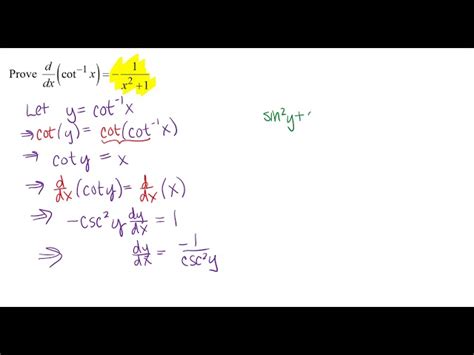 Prove d/dx (cot⁻¹ x) = - 1/(x² + 1)
Let y = cot⁻¹x
⇒ cot(y) = cot(cot⁻¹x)
⇒ coty = x
⇒ d/dx (coty) = d/dx (x)
⇒ -csc²y dy/dx = 1
⇒ dy/dx = -1/csc²y
sin²y+